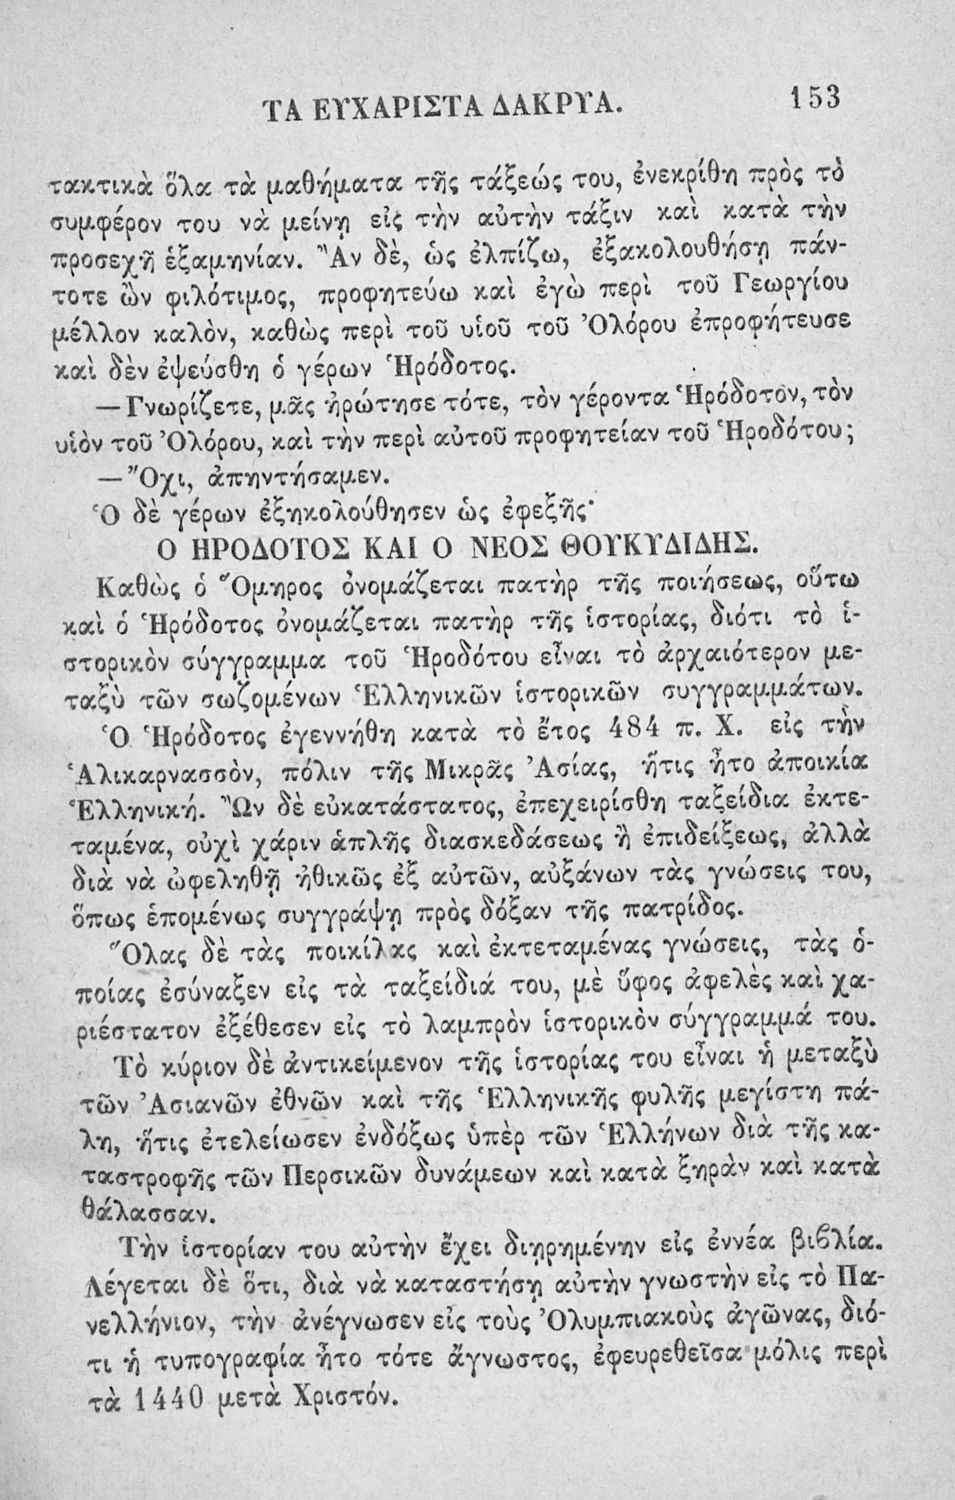 ΤΑ ΕΥΧΑΡΙΣΤΑ ΔΑΚΡΥΑ. 153
τακτικὰ ὅλα τὰ μαθήματα τῆς τάξεώς του, ἐνεκρίθη πρὸς τὸ
συμφέρον του νὰ μείνῃ εἰς τὴν αὐτὴν τάξιν καὶ κατὰ τὴν
προσεχῆ ἑξαμηνίαν. Ἂν δὲ, ὡς ἐλπίζω, ἐξακολουθήσῃ πάν-
τοτε ὢν φιλότιμος, προφητεύω καὶ ἐγὼ περὶ τοῦ Γεωργίου
μέλλον καλὸν, καθὼς περὶ τοῦ υἱοῦ τοῦ Ὀλόρου ἐπροφήτευσε
καὶ δὲν ἐψεύσθη ὁ γέρων Ἡρόδοτος.
— Γνωρίζετε, μᾶς ἠρώτησε τότε, τὸν γέροντα Ἡρόδοτον, τὸν
υἱὸν τοῦ Ὀλόρου, καὶ τὴν περὶ αὐτοῦ προφητείαν τοῦ Ἡροδότου;
— Ὄχι, ἀπηντήσαμεν.
Ὁ δὲ γέρων ἐξηκολούθησεν ὡς ἐφεξῆς·
Ο ΗΡΟΔΟΤΟΣ ΚΑΙ Ο ΝΕΟΣ ΘΟΥΚΥΔΙΔΗΣ.
Καθὼς ὁ Ὅμηρος ὀνομάζεται πατὴρ τῆς ποιήσεως, οὕτω
καὶ ὁ Ἡρόδοτος ὀνομάζεται πατὴρ τῆς ἱστορίας, διότι τὸ ἱ-
στορικὸν σύγγραμμα τοῦ Ἡροδότου εἶναι τὸ ἀρχαιότερον με-
ταξὺ τῶν σωζομένων Ἑλληνικῶν ἱστορικῶν συγγραμμάτων.
Ὁ Ἡρόδοτος ἐγεννήθη κατὰ τὸ ἔτος 484 π. Χ. εἰς τὴν
Ἁλικαρνασσὸν, πόλιν τῆς Μικρᾶς Ἀσίας, ἥτις ἦτο ἀποικία
Ἑλληνική. Ὢν δὲ εὐκατάστατος, ἐπεχειρίσθη ταξείδια ἐκτε-
ταμένα, οὐχὶ χάριν ἁπλῆς διασκεδάσεως ἢ ἐπιδείξεως, ἀλλὰ
διὰ νὰ ὠφεληθῇ ἠθικῶς ἐξ αὐτῶν, αὐξάνων τὰς γνώσεις του,
ὅπως ἑπομένως συγγράψῃ πρὸς δόξαν τῆς πατρίδος.
Ὅλας δὲ τὰς ποικίλας καὶ ἐκτεταμένας γνώσεις, τὰς ὁ-
ποίας ἐσύναξεν εἰς τὰ ταξείδιά του, μὲ ὕφος ἀφελὲς καὶ χα-
ριέστατον ἐξέθεσεν εἰς τὸ λαμπρὸν ἱστορικὸν σύγγραμμά του.
Τὸ κύριον δὲ ἀντικείμενον τῆς ἱστορίας του εἶναι ἡ μεταξὺ
τῶν Ἀσιανῶν ἐθνῶν καὶ τῆς Ἑλληνικῆς φυλῆς μεγίστη πά-
λη, ἥτις ἐτελείωσεν ἐνδόξως ὑπὲρ τῶν Ἑλλήνων διὰ τῆς κα-
ταστροφῆς τῶν Περσικῶν δυνάμεων καὶ κατὰ ξηρὰν καὶ κατὰ
θάλασσαν.
Τὴν ἱστορίαν του αὐτὴν ἔχει διῃρημένην εἰς ἐννέα βιβλία.
Λέγεται δὲ ὅτι, διὰ νὰ καταστήσῃ αὐτὴν γνωστὴν εἰς τὸ Πα-
νελλήνιον, τὴν ἀνέγνωσεν εἰς τοὺς Ὀλυμπιακοὺς ἀγῶνας, διό-
τι ἡ τυπογραφία ἦτο τότε ἄγνωστος, ἐφευρεθεῖσα μόλις περὶ
τὰ 1440 μετὰ Χριστόν.